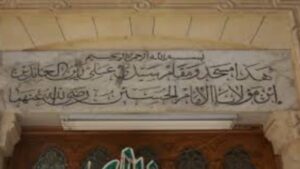 بسم الله الرحمن الرحيم
هذا مسجد ومقام سيدي علي زين العابدين
ابن مولانا الامام الحسين رضي الله عنهما